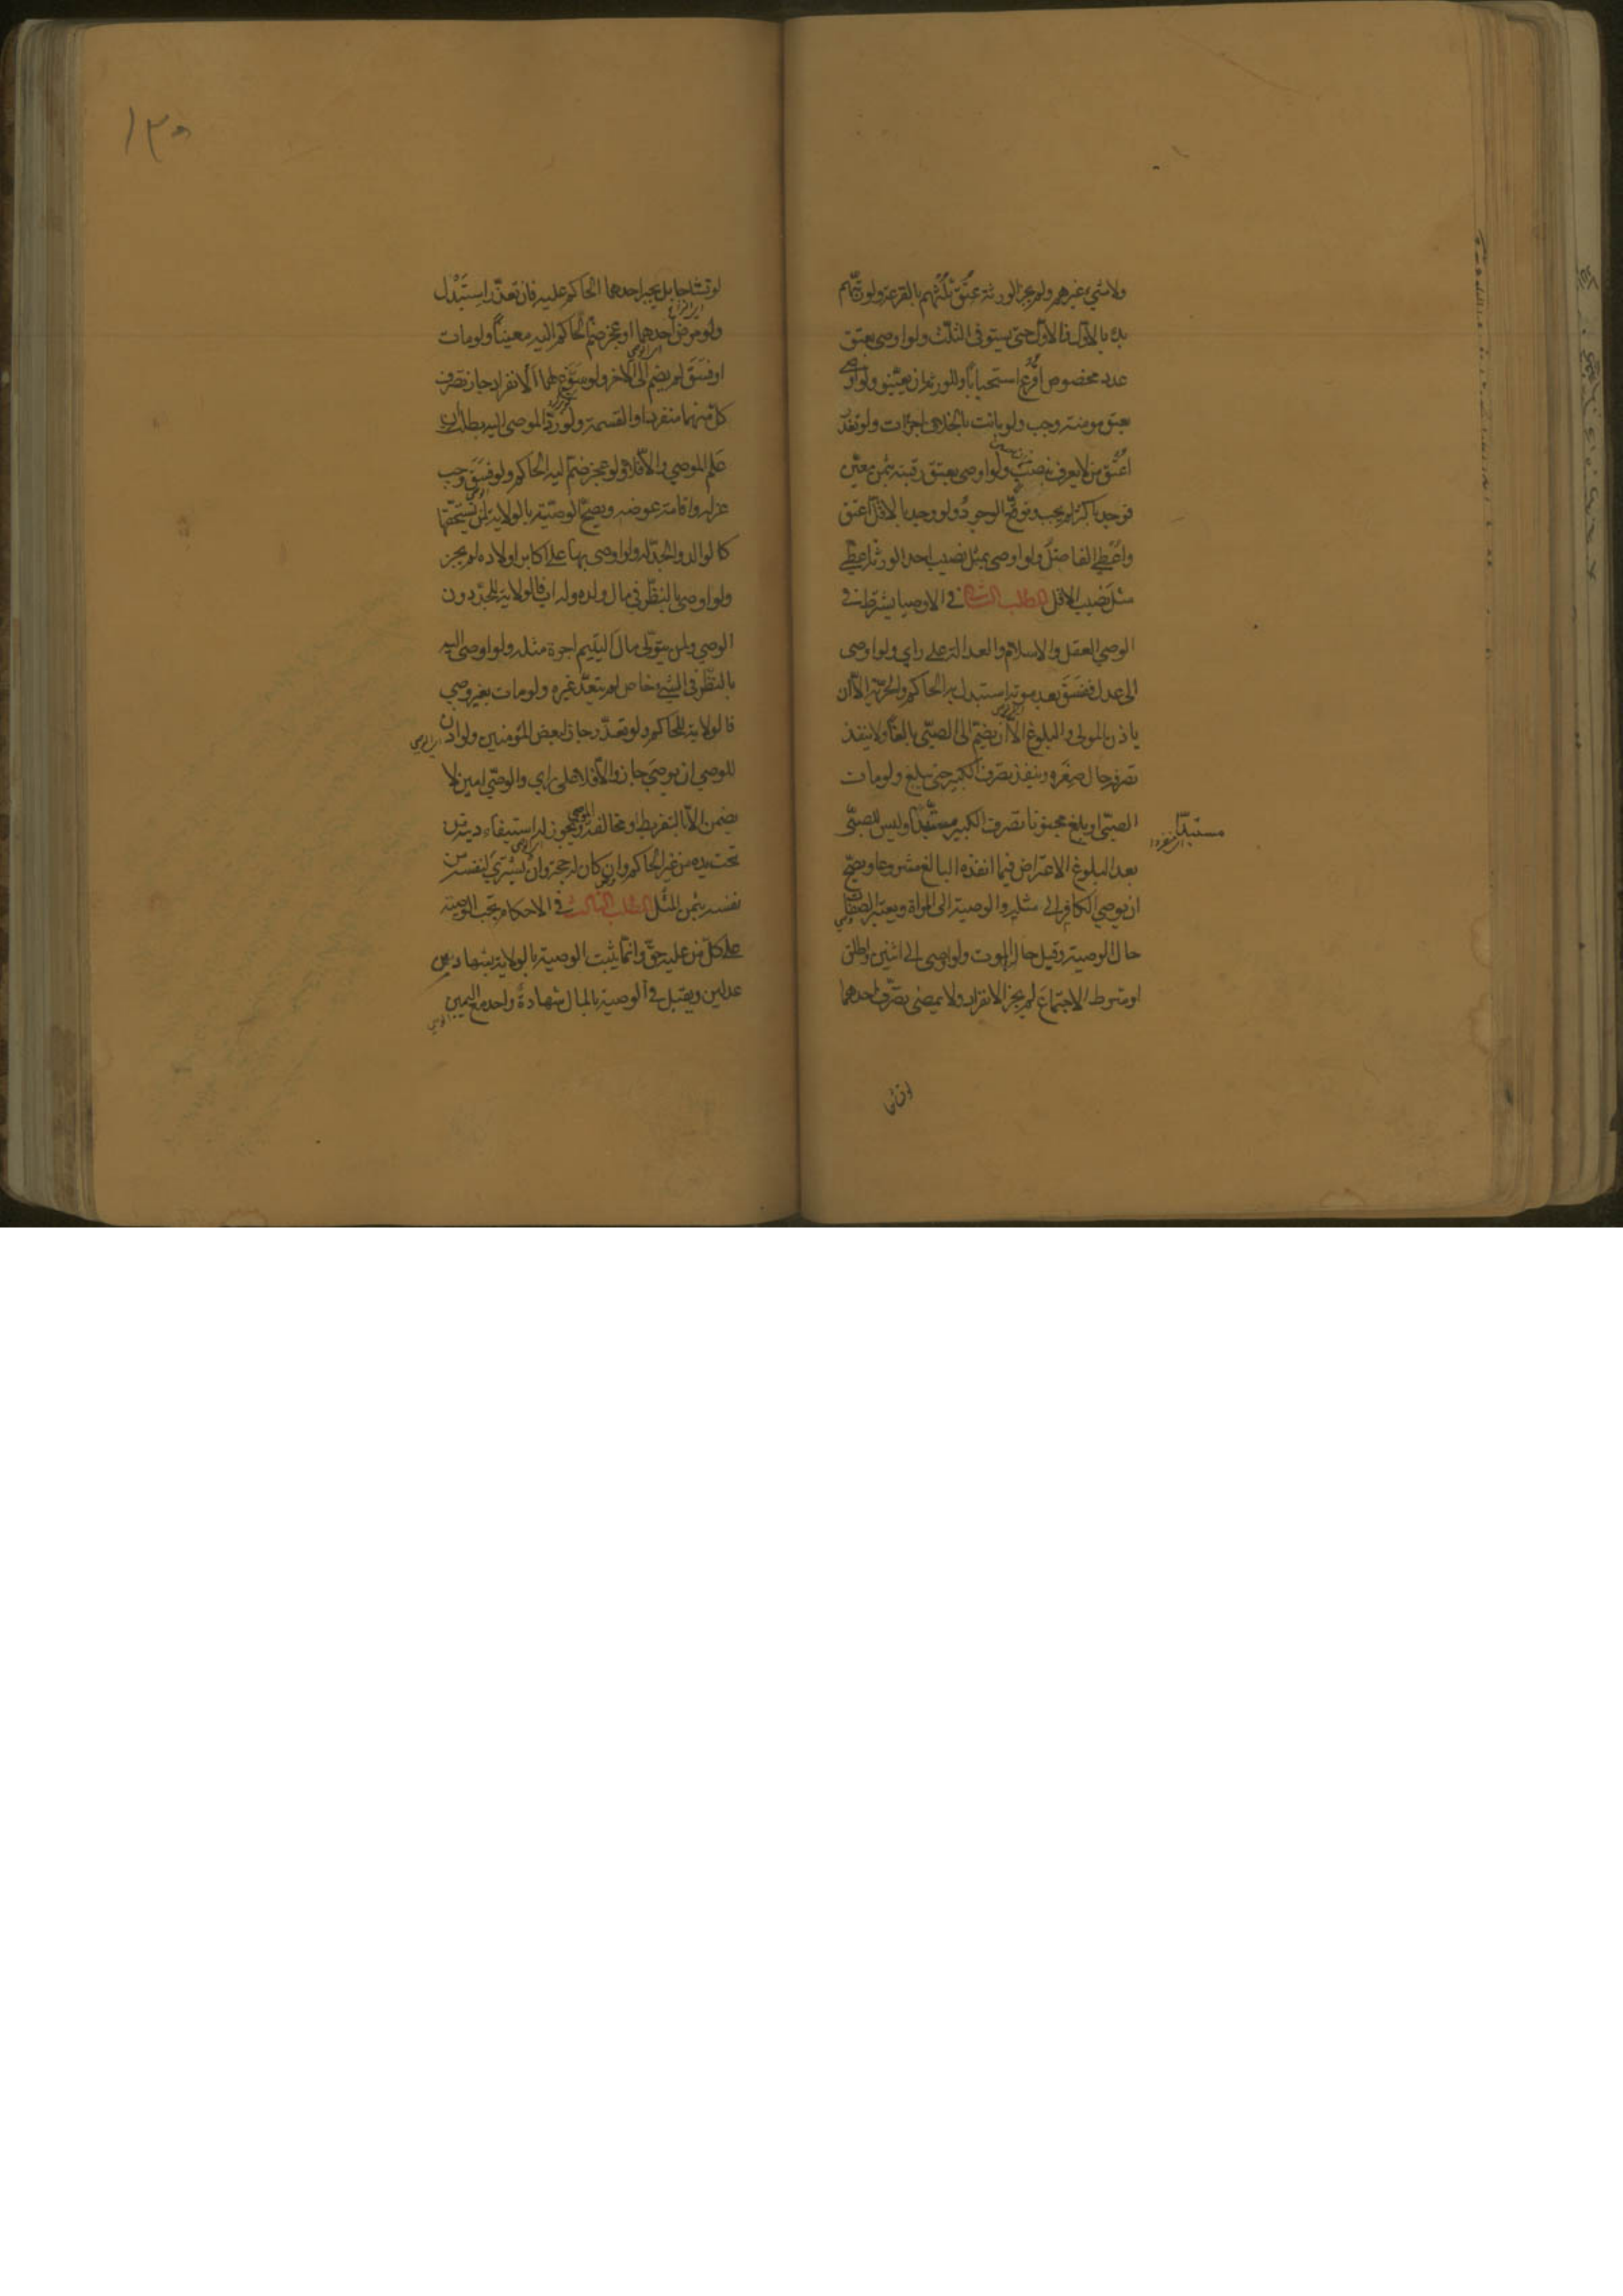 ولا شيء غيرهم ولم يجز الورثة عتق ثلثهم بالقرعة ولو رتّبهم
بدء بالاوّل فالاوّل حتى يستوفى الثلث ولو اوصى بعتق
عدد مخصوص اُقرع استحباباً وللورثة ان يعيّنوا ولو اوصى
بعتق مومنة وجب ولو بانت بالخلاف اجزات ولو تعذّر
اُعتق من لا يعرف بنصب ولو اوصى بعتق رقبة بثمن معيّن
فوجد باكثر لم يجب وتوقّع الوجود ولو وجد بالاقل اعتق
واُعطى الفاضل ولو اوصى بمثل نصيب احد الورثة اعطى
مثل نصيب الاقل المطلب الثامن في الاوصيا يشترط في
الوصي العقل والاسلام والعدالة على راي ولو اوصى
الى عدل ففسق بعد موته استبدل به الحاكم والحرّية الّا ان
ياذن المولى والبلوغ الّا ان يضمّ الى الصبّي بالغاً ولا ينفذ
تصرفه حال صغره وينفذ تصرف الكبير حتى يبلغ ولو مات
الصبّي او بلغ مجنونا تصرف الكبير مستبدّاً وليس للصبّي
مستبدّاً
بعد البلوغ الاعتراض فيما انفذه البالغ مشروعا ويصحّ
ان يوصي الكافر الى مثله والوصية الى المراة ويعتبر الصفات
حال الوصية وقيل حال الموت ولو اوصى الى اثنين واطلق
او شرط الاجتماع لم يجز الانفراد ولا يمضى تصرّف احدهما
لو تشاحا
١٣٥
لو تشاحا بل يجبر احدهما الحاكم عليه فان تعذّر استبدل
ولو مرض احدهما او عجز ضمّ الحاكم اليه معيناً ولو مات
او فسق لم يضم الى الاخر ولو سوّغ لهما الانفراد جاز تصرف
كلّ منهما منفردا والقسمة ولو ردّ الموصى اليه بطلت ان
علم الموصي والّا فلا ولو عجز ضمّ اليه الحاكم ولو فسق وجب
عزله واقامة عوضه ويصحّ الوصيّة بالولاية لمن يستحقّها
كالوالد والجدّ له ولو اوصى بها على اكابر اولاده لم يجز
ولو اوصى بالنظر في مال ولده وله اب فالولاية للجدّ دون
الوصي ولمن يتولّى مال اليتيم اجرة مثله ولو اوصى اليه
بالنظر في الشيء خاص لم يتعدّ غيره ولو مات بغير وصي
فالولاية للحاكم ولو تعذّر جاز لبعض المؤمنين ولو اذن
للوصي ان يوصي جاز والّا فلا على راي والوصّي امين لا
يضمن الّا بالتفريط او مخالفة ويجوز له استيفاء دينه من
تحت يده من غير الحاكم وان كان له حجة وان يشتري لنفسه من
نفسه بثمن المثل المطلب الثالث في الاحكام يجب الوصية
على كلّ من عليه حقّ وانّما يثبت الوصية بالولاية بشهادة
عدلين ويقبل في الوصية بالمال شهادة واحد مع اليمين